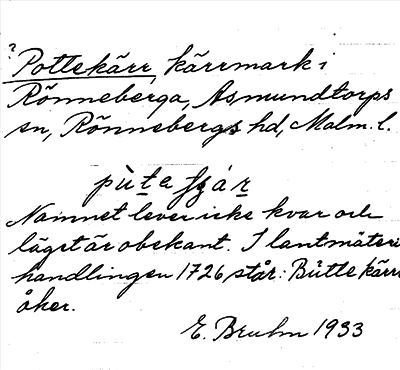 ?
Pottekärr, kärrmark i
Rönneberga, Asmundtorps
sn, Rönnebergs hd, Malm. l.
Namnet lever icke kvar och
läget är obekant. I lantmäteri
handlingen 1726 står: Bütte kärrs
åker.
E. Bruhn 1933